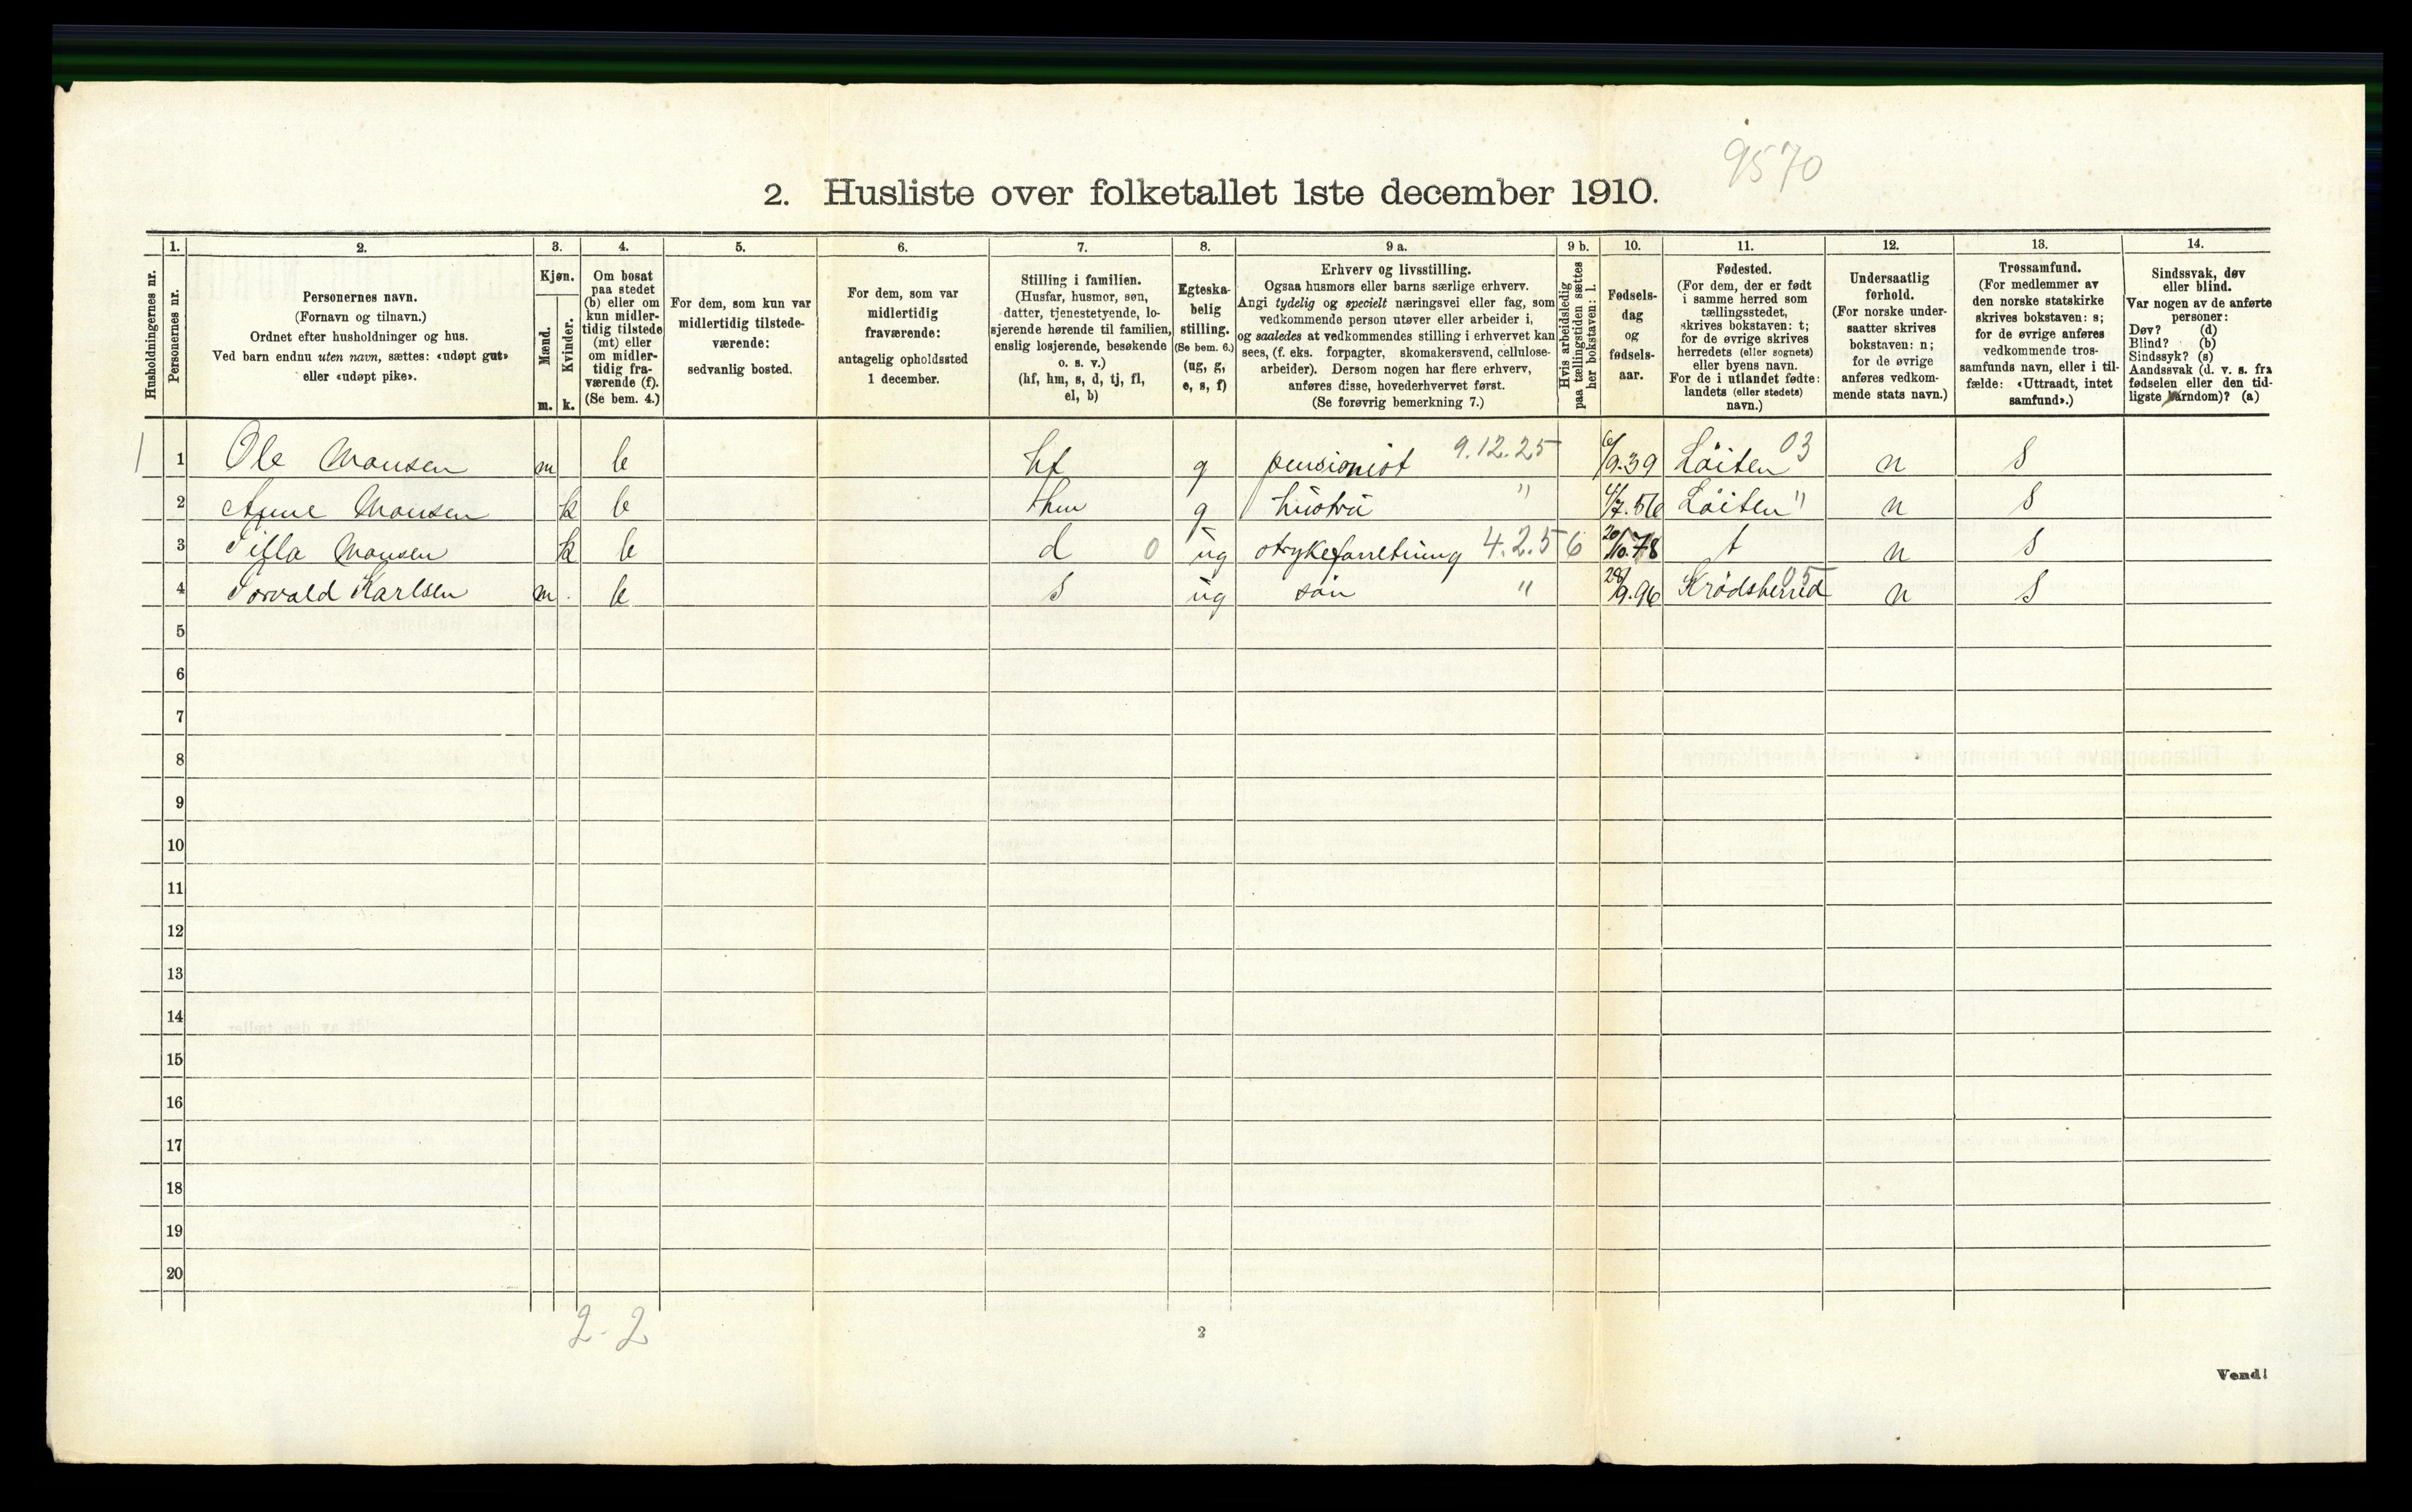 9570
2. Husliste over folketallet 1ste december 1910.
Husholdningernes nr.
1.
Personernes nr.
2.
Personernes navn.
(Fornavn og tilnavn.)
Ordnet efter husholdninger og hus.
Ved barn endnu uten navn, sættes: «udøpt gut»
eller «udøpt pike».
3.
Kjøn.
Mænd.
m.
Kvinder.
k.
4.
Om bosat
paa stedet
(b) eller om
kun midler-
tidig tilstede
(mt) eller
om midler-
tidig fra-
værende (f).
(Se bem. 4.)
5.
For dem, som kun var
midlertidig tilstede-
værende:
sedvanlig bosted.
6.
For dem, som var
midlertidig
fraværende:
antagelig opholdssted
1 december.
7.
Stilling i familien.
(Husfar, husmor, søn,
datter, tjenestetyende, lo-
sjerende hørende til familien,
enslig losjerende, besøkende
o. s. v.)
(hf, hm, s, d, tj, fl,
el, b)
8.
Egteska-
belig
stilling.
(Se bem. 6.)
(ug, g,
e, s, f)
9 a.
Erhverv og livsstilling.
Ogsaa husmors eller barns særlige erhverv.
Angi tydelig og specielt næringsvei eller fag, som
vedkommende person utøver eller arbeider i,
og saaledes at vedkommendes stilling i erhvervet kan
sees, (f. eks. forpagter, skomakersvend, cellulose-
arbeider). Dersom nogen har flere erhverv,
anføres disse, hovederhvervet først.
(Se forøvrig bemerkning 7.)
9 b.
Hvis arbeidsledig
paa tællingstiden sættes
her bokstaven: l.
10.
Fødsels-
dag
og
fødsels-
aar.
11.
Fødested.
(For dem, der er født
i samme herred som
tællingsstedet,
skrives bokstaven: t;
for de øvrige skrives
herredets (eller sognets)
eller byens navn.
For de i utlandet fødte:
landets (eller stedets)
navn.)
12.
Undersaatlig
forhold.
(For norske under-
saatter skrives
bokstaven: n;
for de øvrige
anføres vedkom-
mende stats navn.)
13.
Trossamfund.
(For medlemmer av
den norske statskirke
skrives bokstaven: s;
for de øvrige anføres
vedkommende tros-
samfunds navn, eller i til-
fælde: «Uttraadt, intet
samfund».)
14.
Sindssvak, døv
eller blind.
Var nogen av de anførte
personer:
Døv? (d)
Blind? (b)
Sindssyk? (s)
Aandssvak (d. v. s. fra
fødselen eller den tid-
ligste barndom)? (a)
1 1 Ole Monsen m b hf g pensionist 9.12.25 6/9.39 Löiten 03 n s
2 Anne Monsen k b hm g hustru " 4/7.56 Löiten " n s
3 Tilla Monsen k b d 0 ug strykeforretning 4.2.5 6 20/10.78 t n s
4 Torvald Karlsen m b s ug sön " 28/9.96 Krödsherred 05 n s
5
6
7
8
9
10
11
12
13
14
15
16
17
18
19
20
2-2
2
Vend!